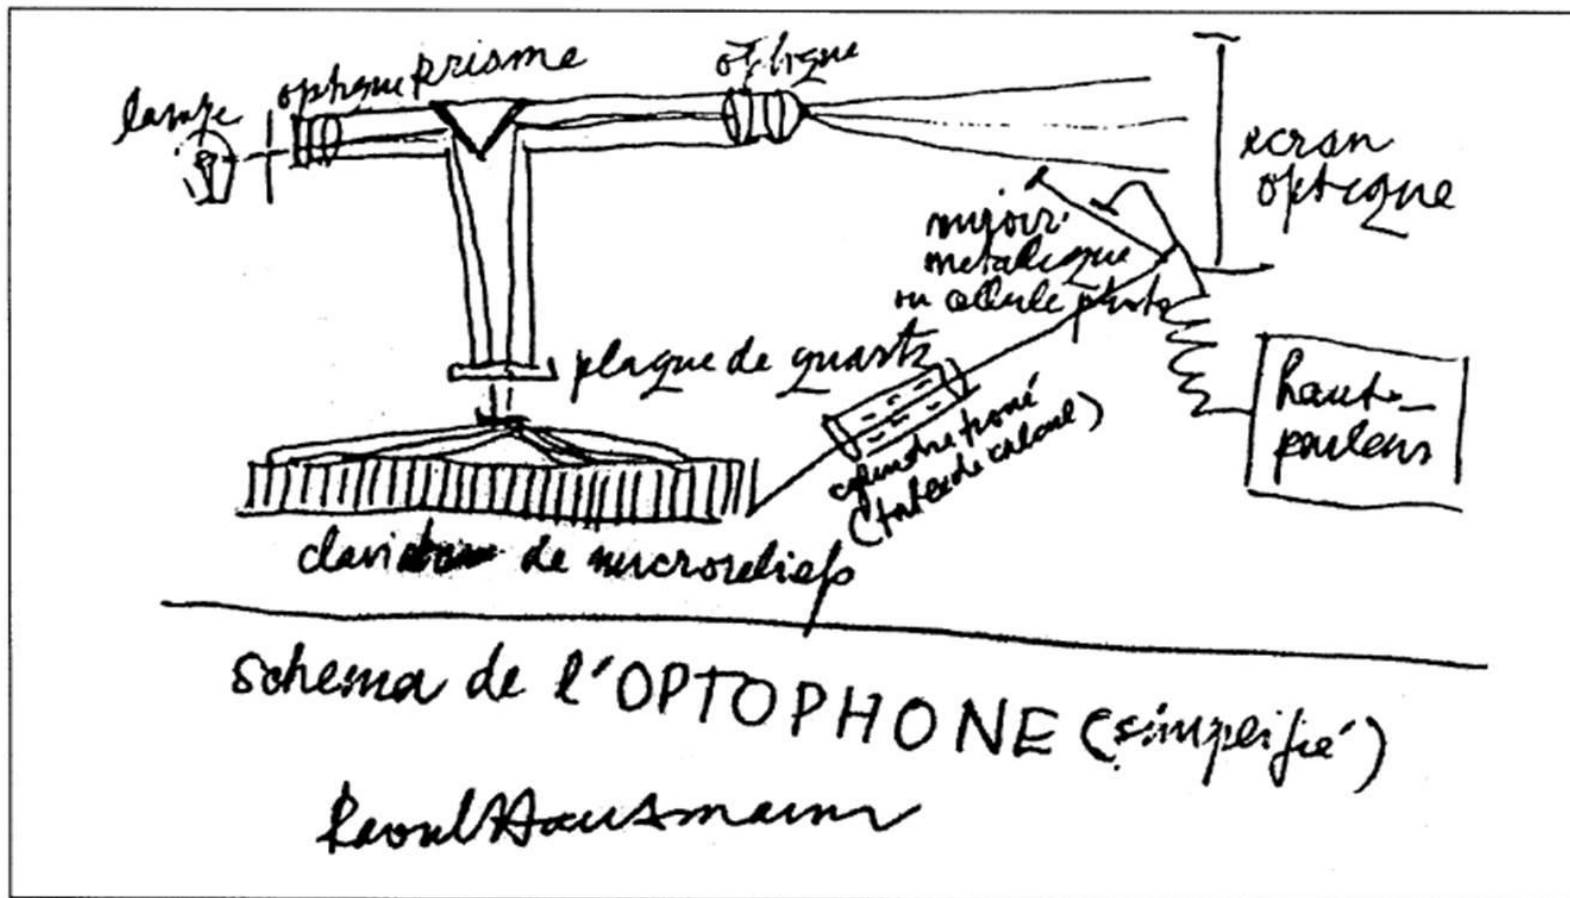 lampe
optique
prisme
optique
ecran
optique
miroir
metalique
ou cellule photo
plaque de quartz
haut-
parleurs
cylindre troué
(tubes de calcul)
de microreliefs
schema de l'OPTOPHONE (simplifié)
Raoul Hausmann